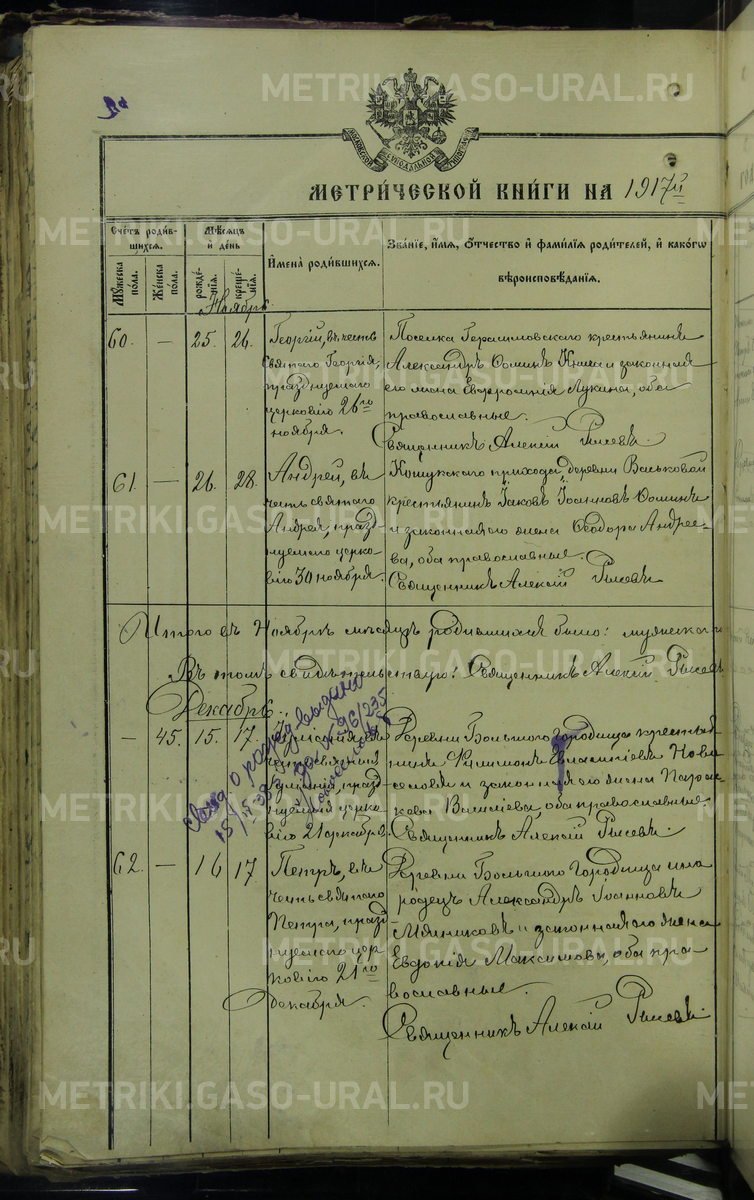 METRIKI.GASO-URAL.RU
МОСКОВСКОЙ СѴНОДАЛЬНОЙ ТИПОГРАФІИ
МЕТРИ́ЧЕСКОЙ КНИ́ГИ НА 1917й
Сче́тъ роди́вшихся.
Му́жеска по́ла.
Же́нска по́ла.
Мѣ́сяцъ и҆ де́нь
рожде́нїя.
креще́нїя.
И҆мена̀ роди́вшихся.
Зва́нїе, и҆́мя, ѻ҆́тчество и҆ фами́лїя роди́телей, и҆ како́гѡ
вѣроисповѣ́данїя.
Ноябрь
60. — 25. 26.
Георгій, въ честь
святаго Георгія,
празднуемаго
церковію 26го
ноября.
Поселка Герасимовскаго крестьянинъ
Александръ Ѳоминъ и законная
его жена Евфросинія Лукина, оба
православные.
Священникъ Алексій
61. — 26. 28.
Андрей, въ
честь святаго
Андрея, празд-
нуемаго церко-
вію 30 ноября.
Кошукскаго прихода, деревни Вальковой
крестьянинъ Іаковъ Іоанновъ Ѳоминъ
и законная его жена Ѳеодора Андрее-
ва, оба православные.
Священникъ Алексій
Итого въ Ноябрѣ мѣсяцѣ родившихся было: мужеска
Въ томъ свидѣтельствую: Священникъ Алексій
Декабрь.
— 45. 15. 17.
честь святыя
празд-
нуемыя церко-
вію 21 декабря.
Деревни Большого Городища крестья-
нинъ Филимонъ Нови-
и законная его жена Парас-
кева Васильева, оба православные.
Священникъ Алексій
Свид. о рожд. выдано
62. — 16 17
Петръ, въ
честь святаго
Петра, празд-
нуемаго цер-
ковію 21го
Декабря.
Деревни Большого Городища ино-
родецъ Александръ Іоанновъ
Мянниковъ и законная его жена
Евдокія Максимова, оба пра-
вославные.
Священникъ Алексій